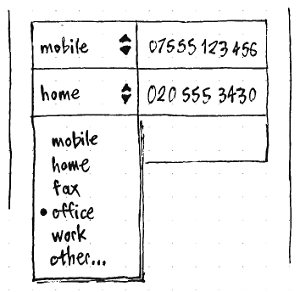 mobile 07555 123 456
home 020 555 3430
mobile
home
fax
• office
work
other...